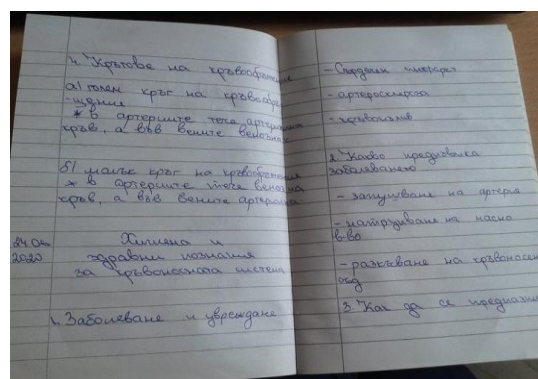 4. Кръгове на кръвообръщение
а) голям кръг на кръвообръ-
-щение
* в артериите тече артериална
кръв, а във вените венозна
б) малък кръг на кръвообръщение
* в артериите тече венозна
кръв, а във вените артериална
24 Хигиена и
2020 здравни познания
за кръвоносната система
1. Заболяване и увреждане
- Сърдечен инфаркт
- артеросклероза
- кръвоизлив
2. Какво предизвиква
заболяването
- запушване на артерия
- натрупване на масно
в-во
- разкъсване на кръвоносен
съд
3. Как да се предпазим